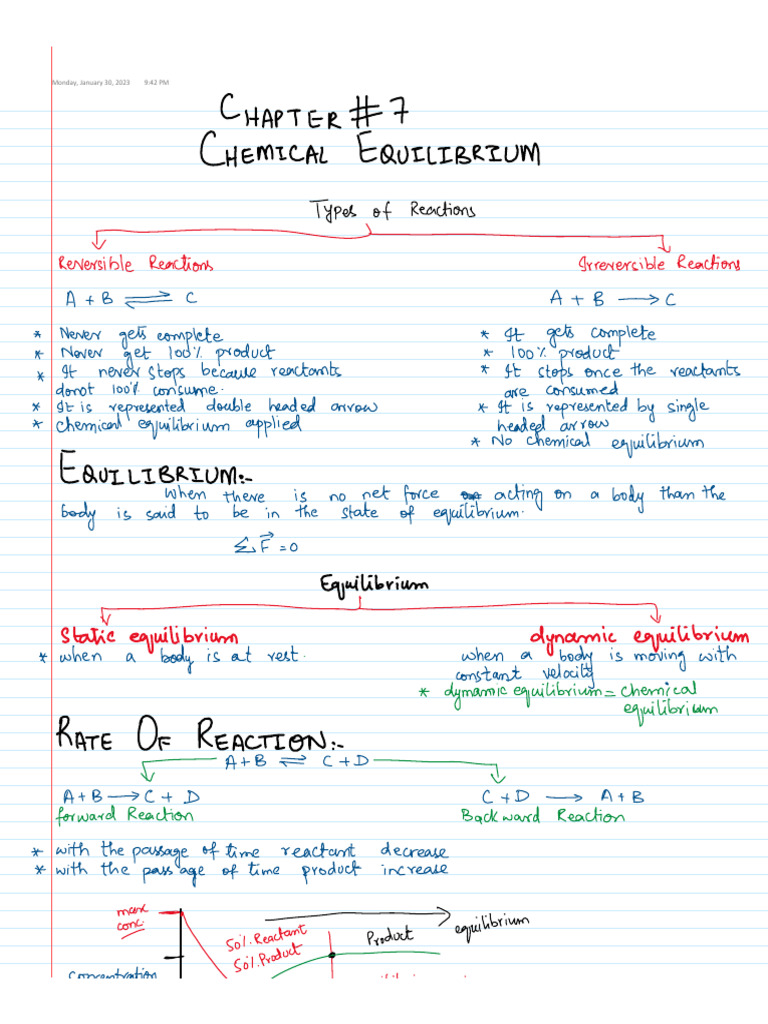 Monday, January 30, 2023 9:42 PM
CHAPTER # 7
CHEMICAL EQUILIBRIUM
Types of Reactions
Reversible Reactions
A + B ⇌ C
* Never gets complete
* Never get 100% product
* It never stops because reactants
donot 100% consume.
* It is represented double headed arrow
* Chemical equilibrium applied
Irreversible Reactions
A + B ⟶ C
* It gets complete
* 100% product
* It stops once the reactants
are consumed
* It is represented by single
headed arrow
* No chemical equilibrium
EQUILIBRIUM:-
When there is no net force acting on a body than the
body is said to be in the state of equilibrium.
ΣF⃗ = 0
Equilibrium
Static equilibrium
* when a body is at rest.
dynamic equilibrium
when a body is moving with
constant velocity
* dynamic equilibrium = chemical
equilibrium
RATE OF REACTION:-
A+B ⇌ C+D
A+B ⟶ C+D
forward Reaction
C+D ⟶ A+B
Backward Reaction
* with the passage of time reactant decrease
* with the passage of time product increase
max
conc.
50%.Reactant
50%.Product
Product
equilibrium
Concentration